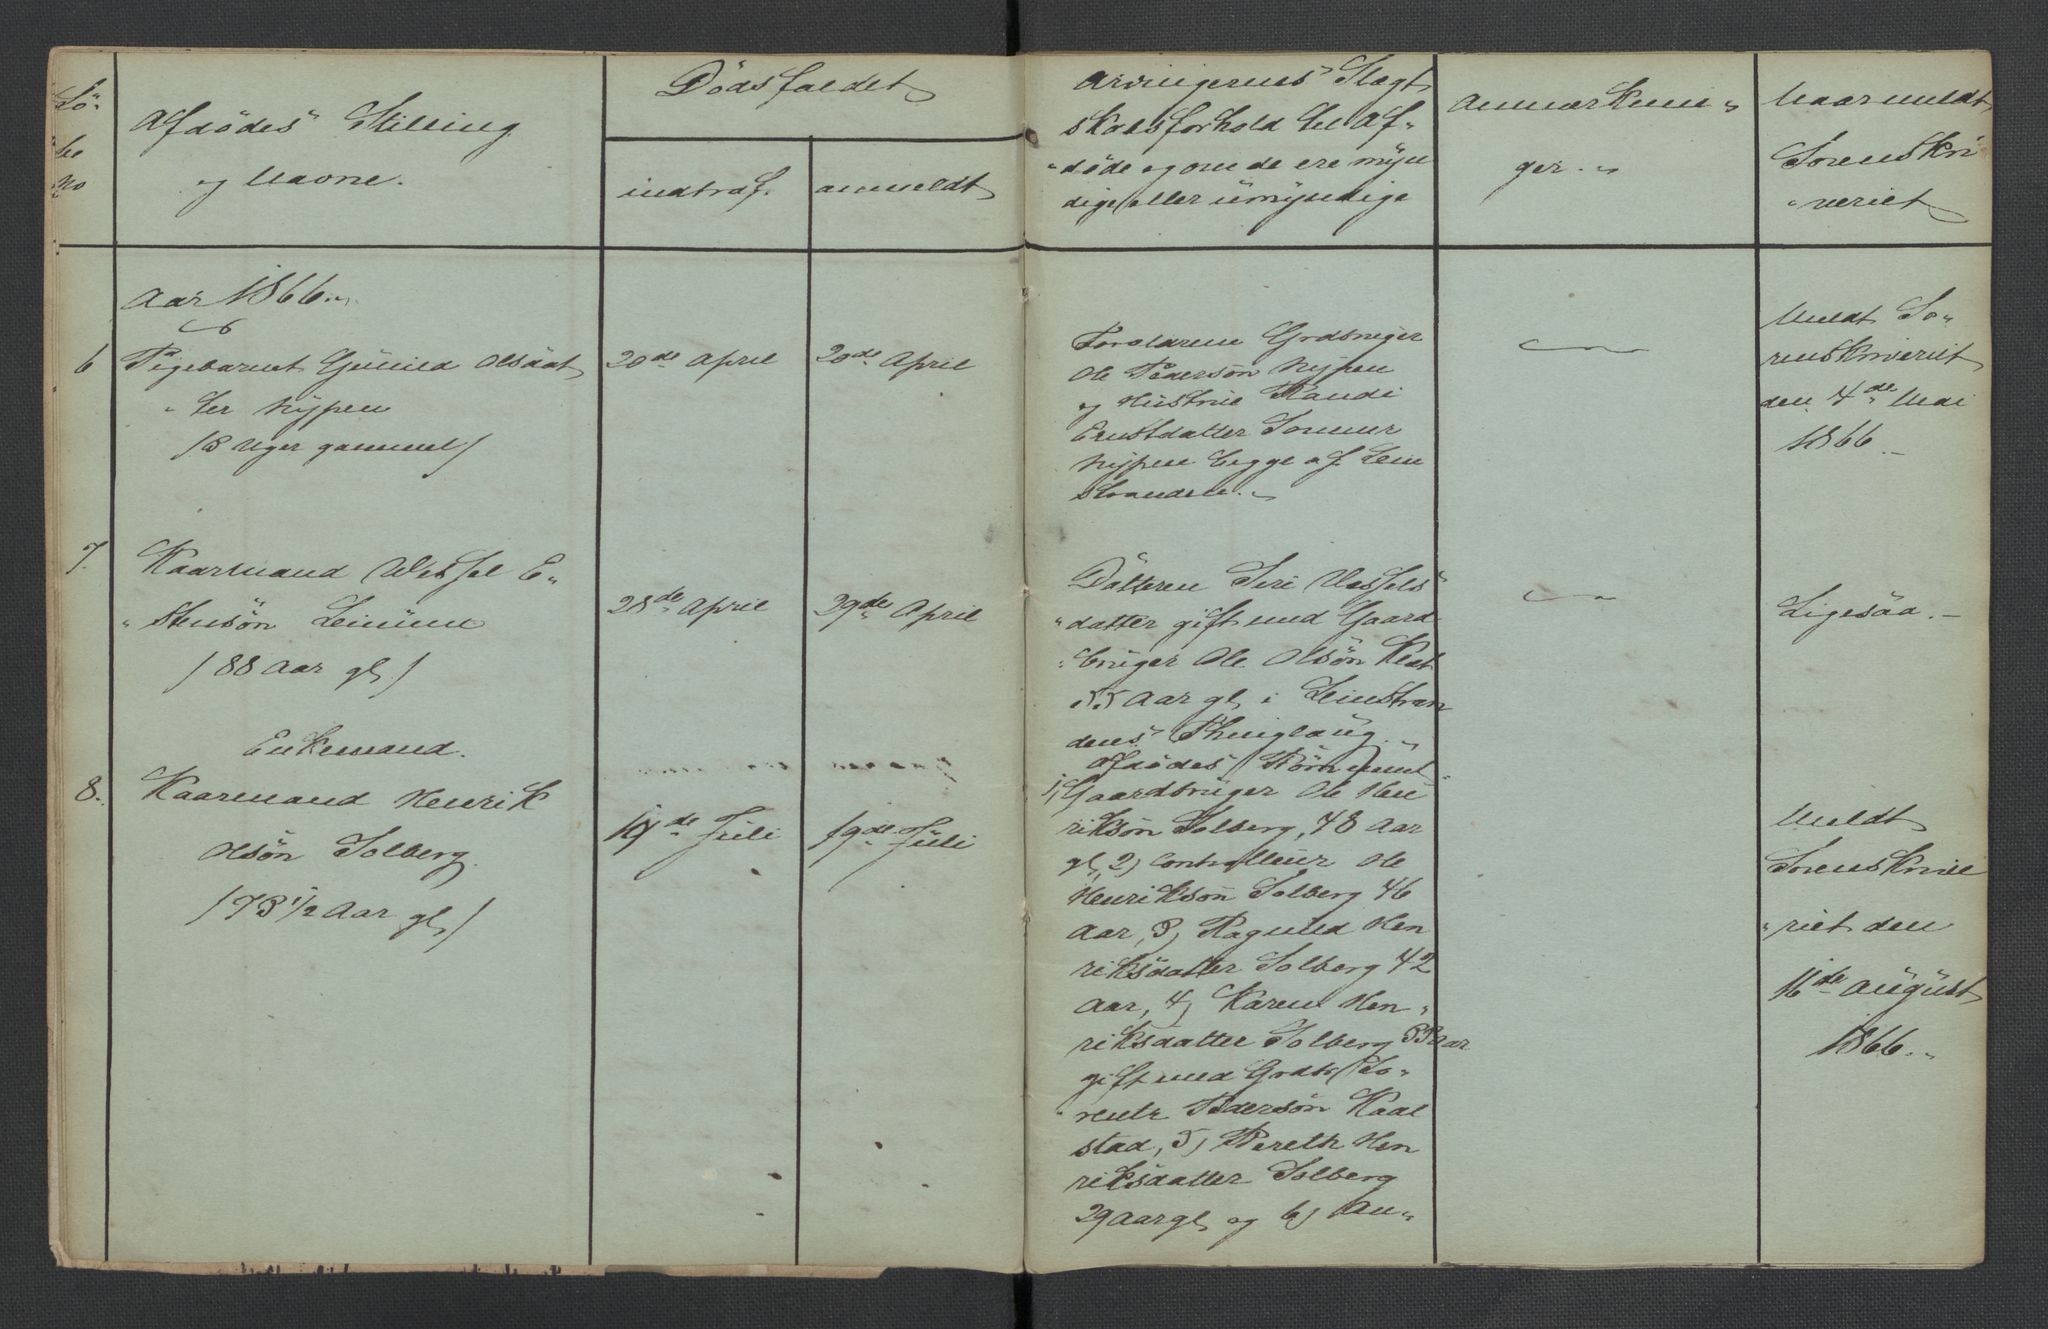 Lö-
be
No
Afdödes Stilling
og Navne.
Dödsfaldet
indtraf.
anmeldt
Arvingernes Slægt
skabsforhold til Af-
döde og om de ere myn
dige eller umyndige
Anmærknin-
ger.
Naar meldt
Sorenskri
veriet
Aar 1866.
6
Pigebarnet Gunild Olsdat
ter Nypen
/8 Uger gammel/
20de April
20de April
Forældrene Grdbruger
Ole Pedersön Nypen
og Hustrue Randi
Ernstdatter
Nypen begge af Lein
stranden.
Meldt So-
renskriveriet
den 4de Mai
1866
7.
Kaarmand Wessel E-
stensön Leinum
/88 Aar gl/
28de April
29de April
Datteren Seri Vessels
datter gift med Gaard
bruger Ole Olsön
55 Aar gl i Leinstran
dens Thinglaug
Ligesaa.
Enkemand.
8.
Kaarmand Henrik
Olsön Solberg
/73 1/2 Aar gl/
19de Juli
19de Juli
Afdödes Börn
1, Gaardbruger Ole Hen
riksön Solberg, 48 Aar
gl, 2, Controlleur Ole
Henriksön Solberg 46
Aar, 3, Ragnild Hen
riksdatter Solberg 42
Aar, 4, Karen Hen-
riksdatter Solberg 33 Aar
gift med Grdbr Lo-
rents Pedersön Kaal
stad, 5, Bereth Hen
riksdatter Solberg
29 Aar gl og 6, An-
Meldt
Sorenskrive
riet den
16de August
1866.